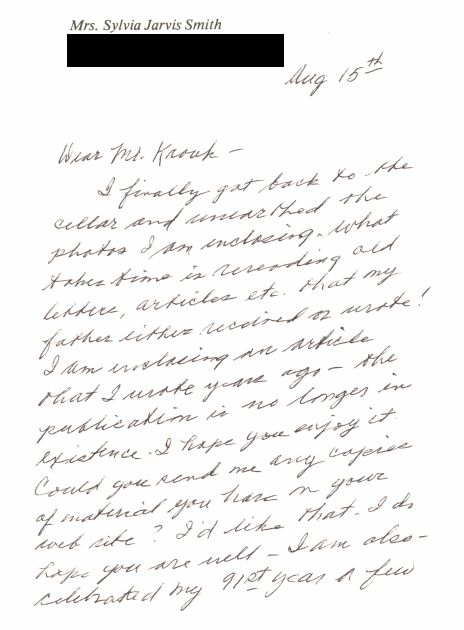 Mrs. Sylvia Jarvis Smith
Aug 15th
Dear Mr. Krouk -
I finally got back to the
cellar and unearthed the
photos I am inclosing. What
takes time is rereading old
letters, articles etc. that my
father either received or wrote!
I am inclosing an article
that I wrote years ago - the
publication is no longer in
existence. I hope you enjoy it.
Could you send me any copies
of material you have on your
web site? I'd like that. I do
hope you are well - I am also -
celebrated my 91st year a few